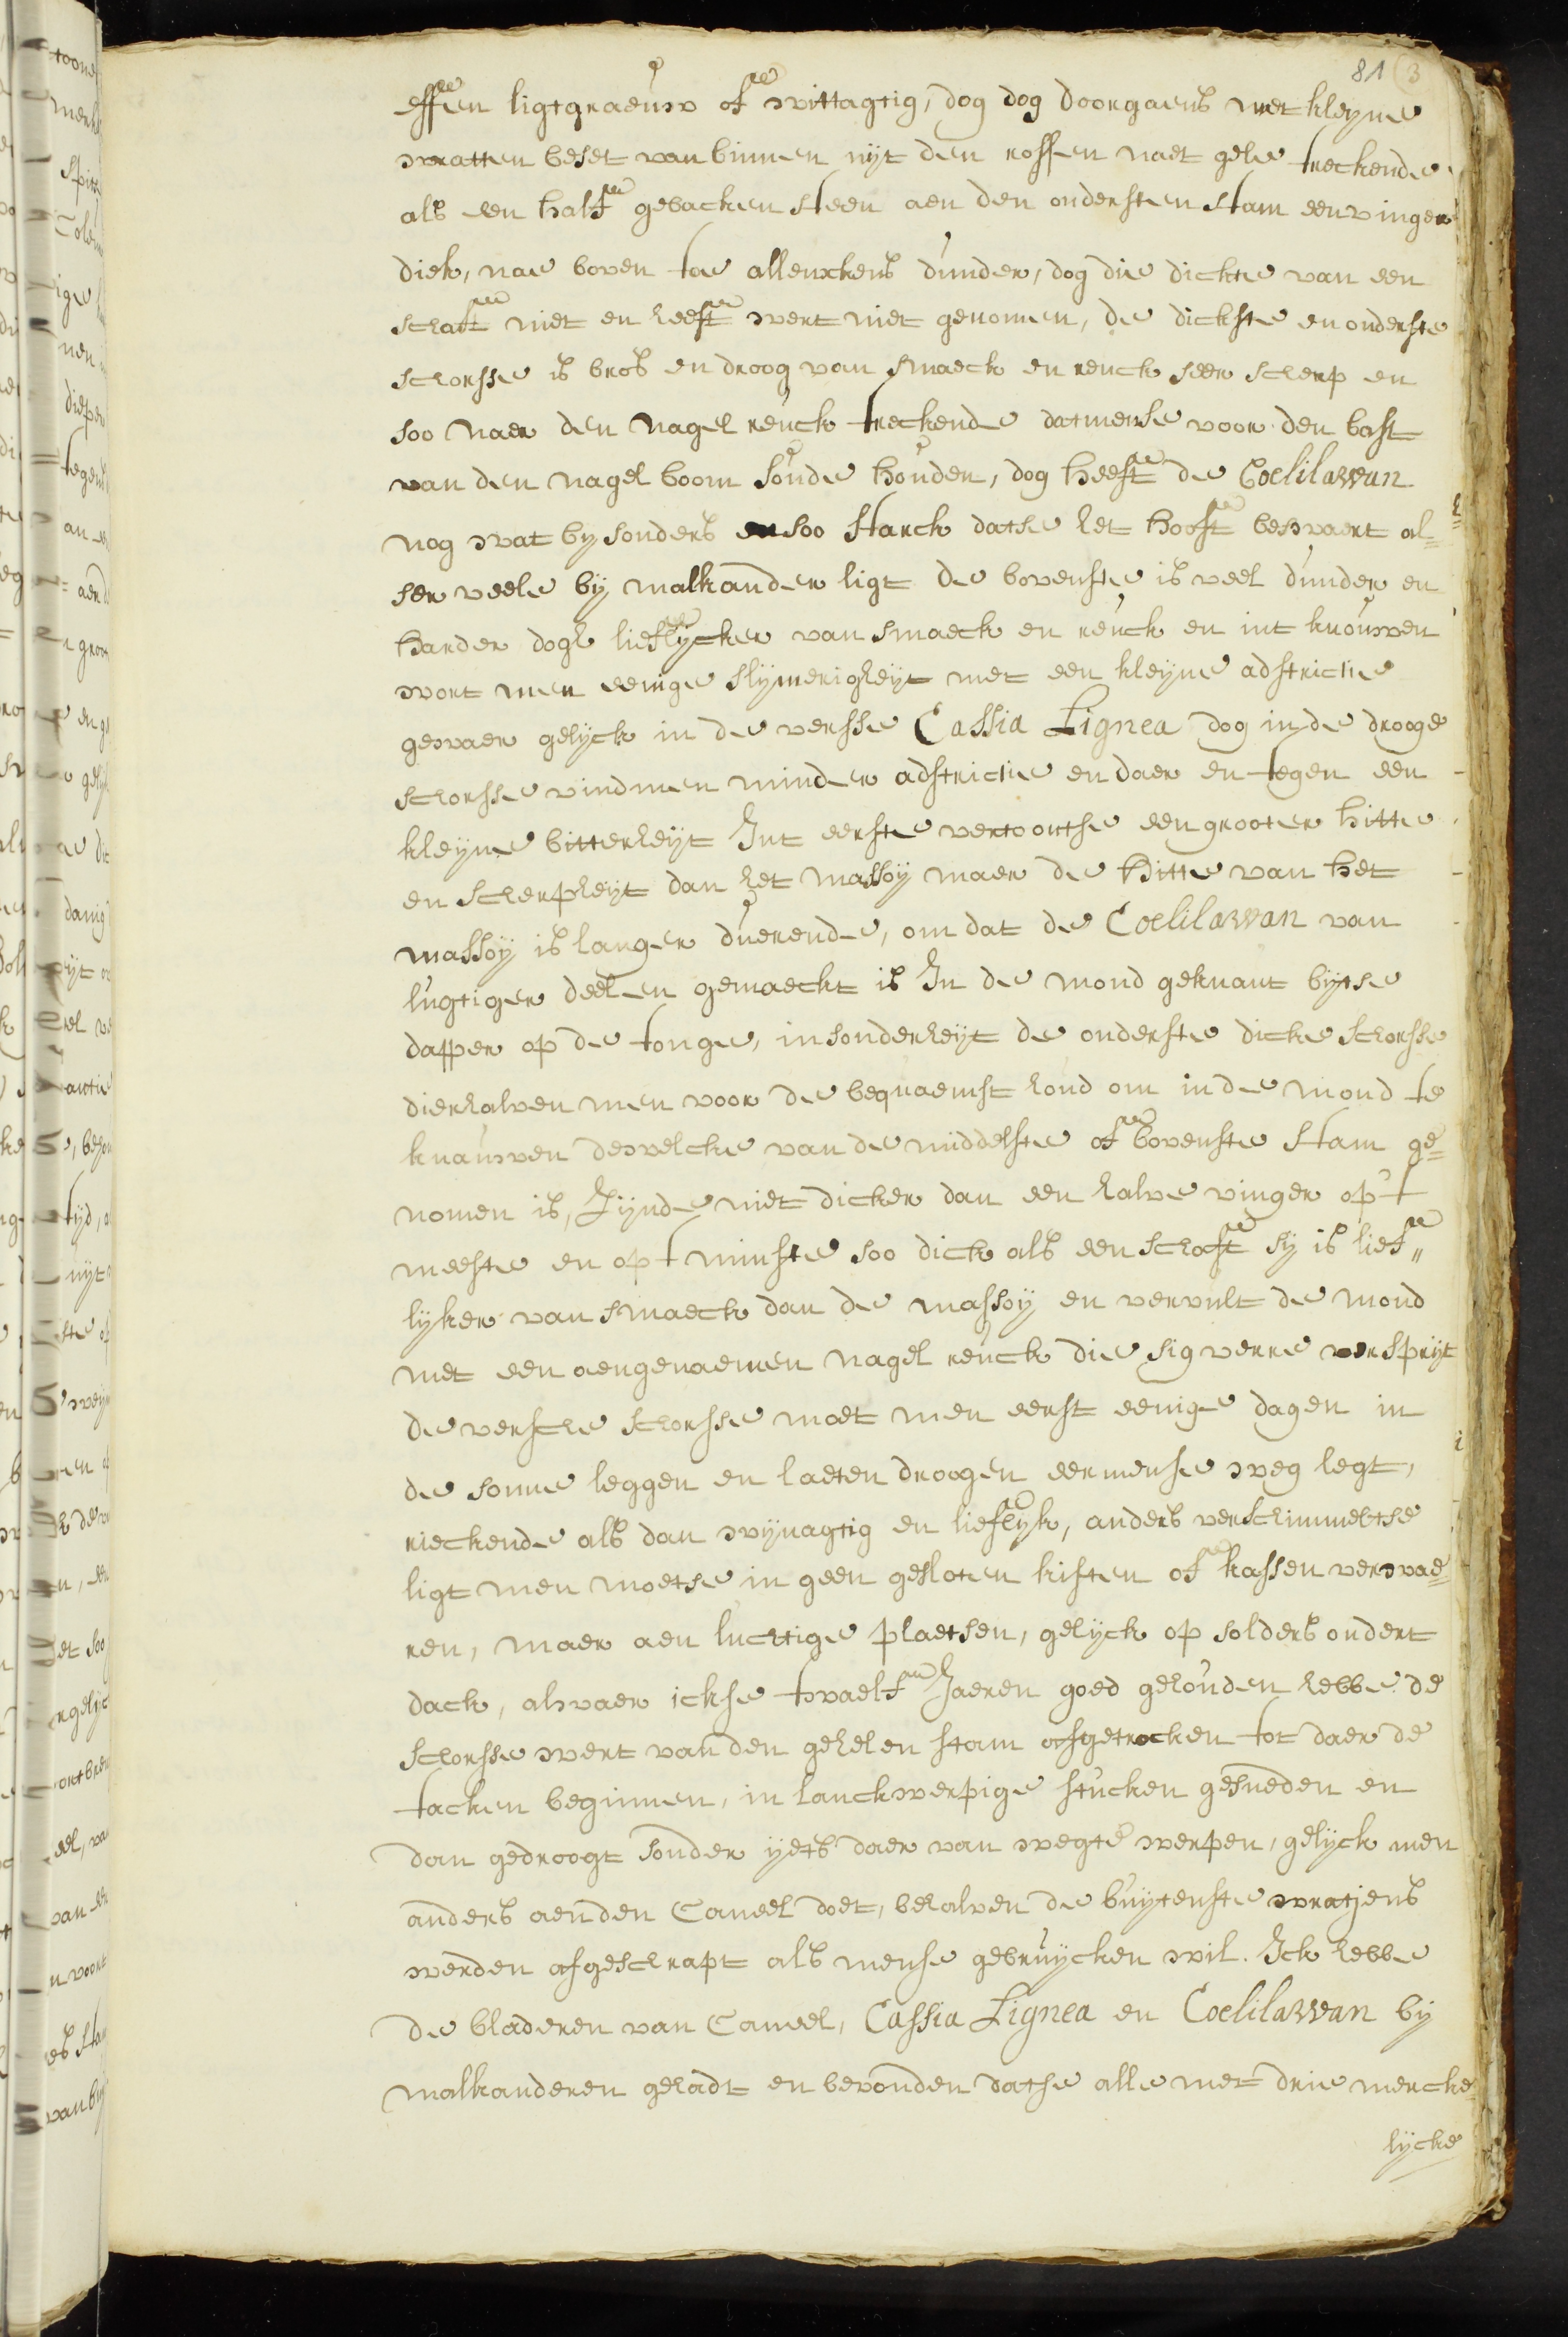 81 3
effen ligtgraeuw of wittagtig, dog dog doorgaens met kleyne
wratten beset van binnen uÿt den rossen naet gele treckende
als een half gebacken steen aen den ondersten stam een vinger
dick, nae boven toe allenxkens dunder, dog die dickte van een
schaft niet en heeft wert niet genomen, de dickste en onderste
schorsse is bros en droog van smaeck en reuck seer scherp en
soo naer den nagel reuck treckende datmense voor den bast
van den nagel boom soude houden, dog heeft de Coelilawan
nog wat bysonders en soo starck datse het hooft beswaert al=
ser veele bÿ malkander ligt de bovenste is veel dunder en
harder dogh lieflÿcker van smaeck en reuck en int knouwen
wort men eenige slÿmerigheÿt met een kleÿne adstrictie
gewaer gelÿck in de versse Cassia Lignea dog in de drooge
schorsse vindmen minder adstrictie en daer en tegen een
kleÿne bitterheÿt Int eerste vertoontse een grooter hitte
en scherpheÿt dan het massoÿ maer de hitte van het
massoÿ is langer duerende, om dat de Coelilawan van
lugtiger deelen gemaeckt is In de mond geknaut bÿtse
dapper op de tonge, insonderheÿt de onderste dicke schorsse
dierhalven men voor de bequaemst houd om in de mond te
knauwen dewelcke van de middelste of bovenste stam ge=
nomen is, Zÿnde niet dicker dan een halve vinger op't
meeste en op t minste soo dick als een schaft sÿ is lief=
lyker van smaeck dan de massoÿ en vervult de mond
met een aengenaemen nagel reuck die sig verre verspryt
de versche schorsse moet men eerst eenige dagen in
de sonne leggen en laeten droogen eermense weg legt,
rieckende als dan wÿnagtig en lieflÿk, anders verschimmeltse
ligt men moetse in geen gesloten kisten of kassen verwae=
ren, maer aen luchtige plaetsen, gelÿck op solders ondert
dack, alwaer ickse twaelf Jaeren goed gehouden hebbe de
schorsse wert van den gehelen stam afgetrocken tot daer de
tacken beginnen, in lanckwerpige stucken gesneden en
dan gedroogt sonder ÿets daer van wegte werpen, gelÿck men
anders aen den Caneel doet, behalven de buÿtenste wratjens
werden afgeschrapt als mense gebruÿcken wil. Ick hebbe
de bladeren van Caneel, Cassia Lignea en Coelilawan by
malkanderen gehadt en bevonden datse alle met drie mercke=
lÿcke